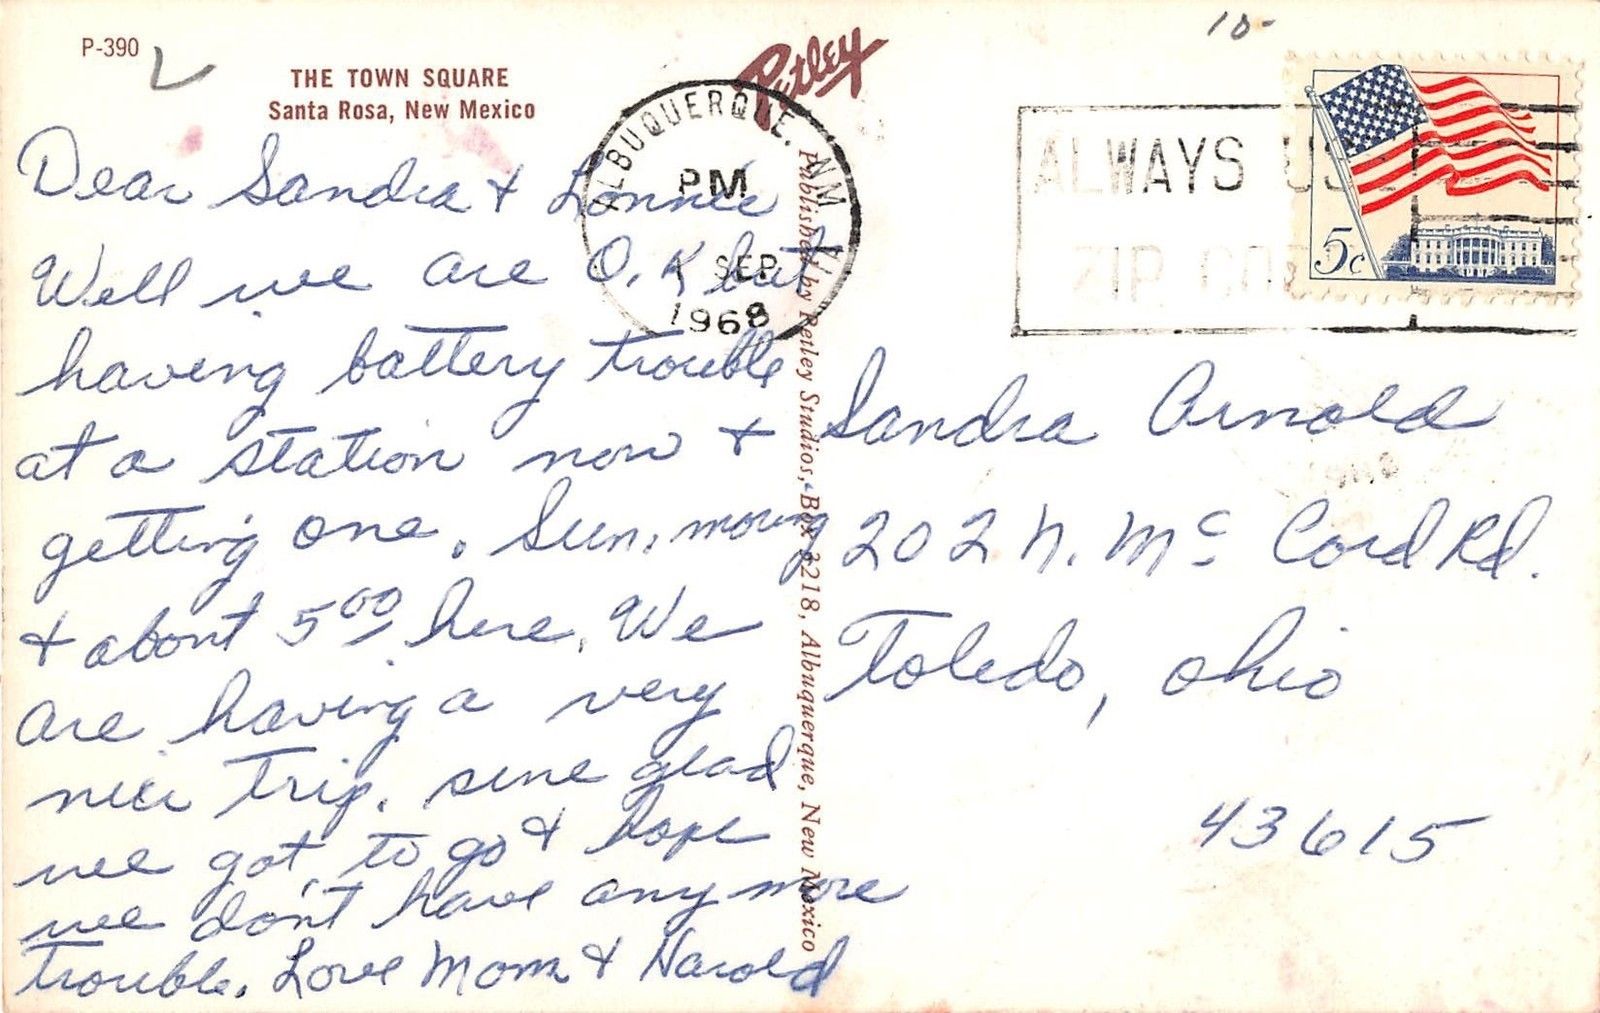 P-390
THE TOWN SQUARE
Santa Rosa, New Mexico
Dear Sandra & Lonnie
Well we are O.K but
having battery trouble
at a station now &
getting one. Sun. morning
& about 5 00 here. We
are having a very
nice trip. sure glad
we got to go & hope
we don't have any more
trouble. Love Mom & Harold
Petley
Published by Petley Studios, Box 2218, Albuquerque, New Mexico
ALBUQUERQUE, NM
PM
SEP
1968
10-
ALWAYS US
ZIP CO
5c
Sandra Arnold
202 N. Mc Cord Rd.
Toledo, Ohio
43615